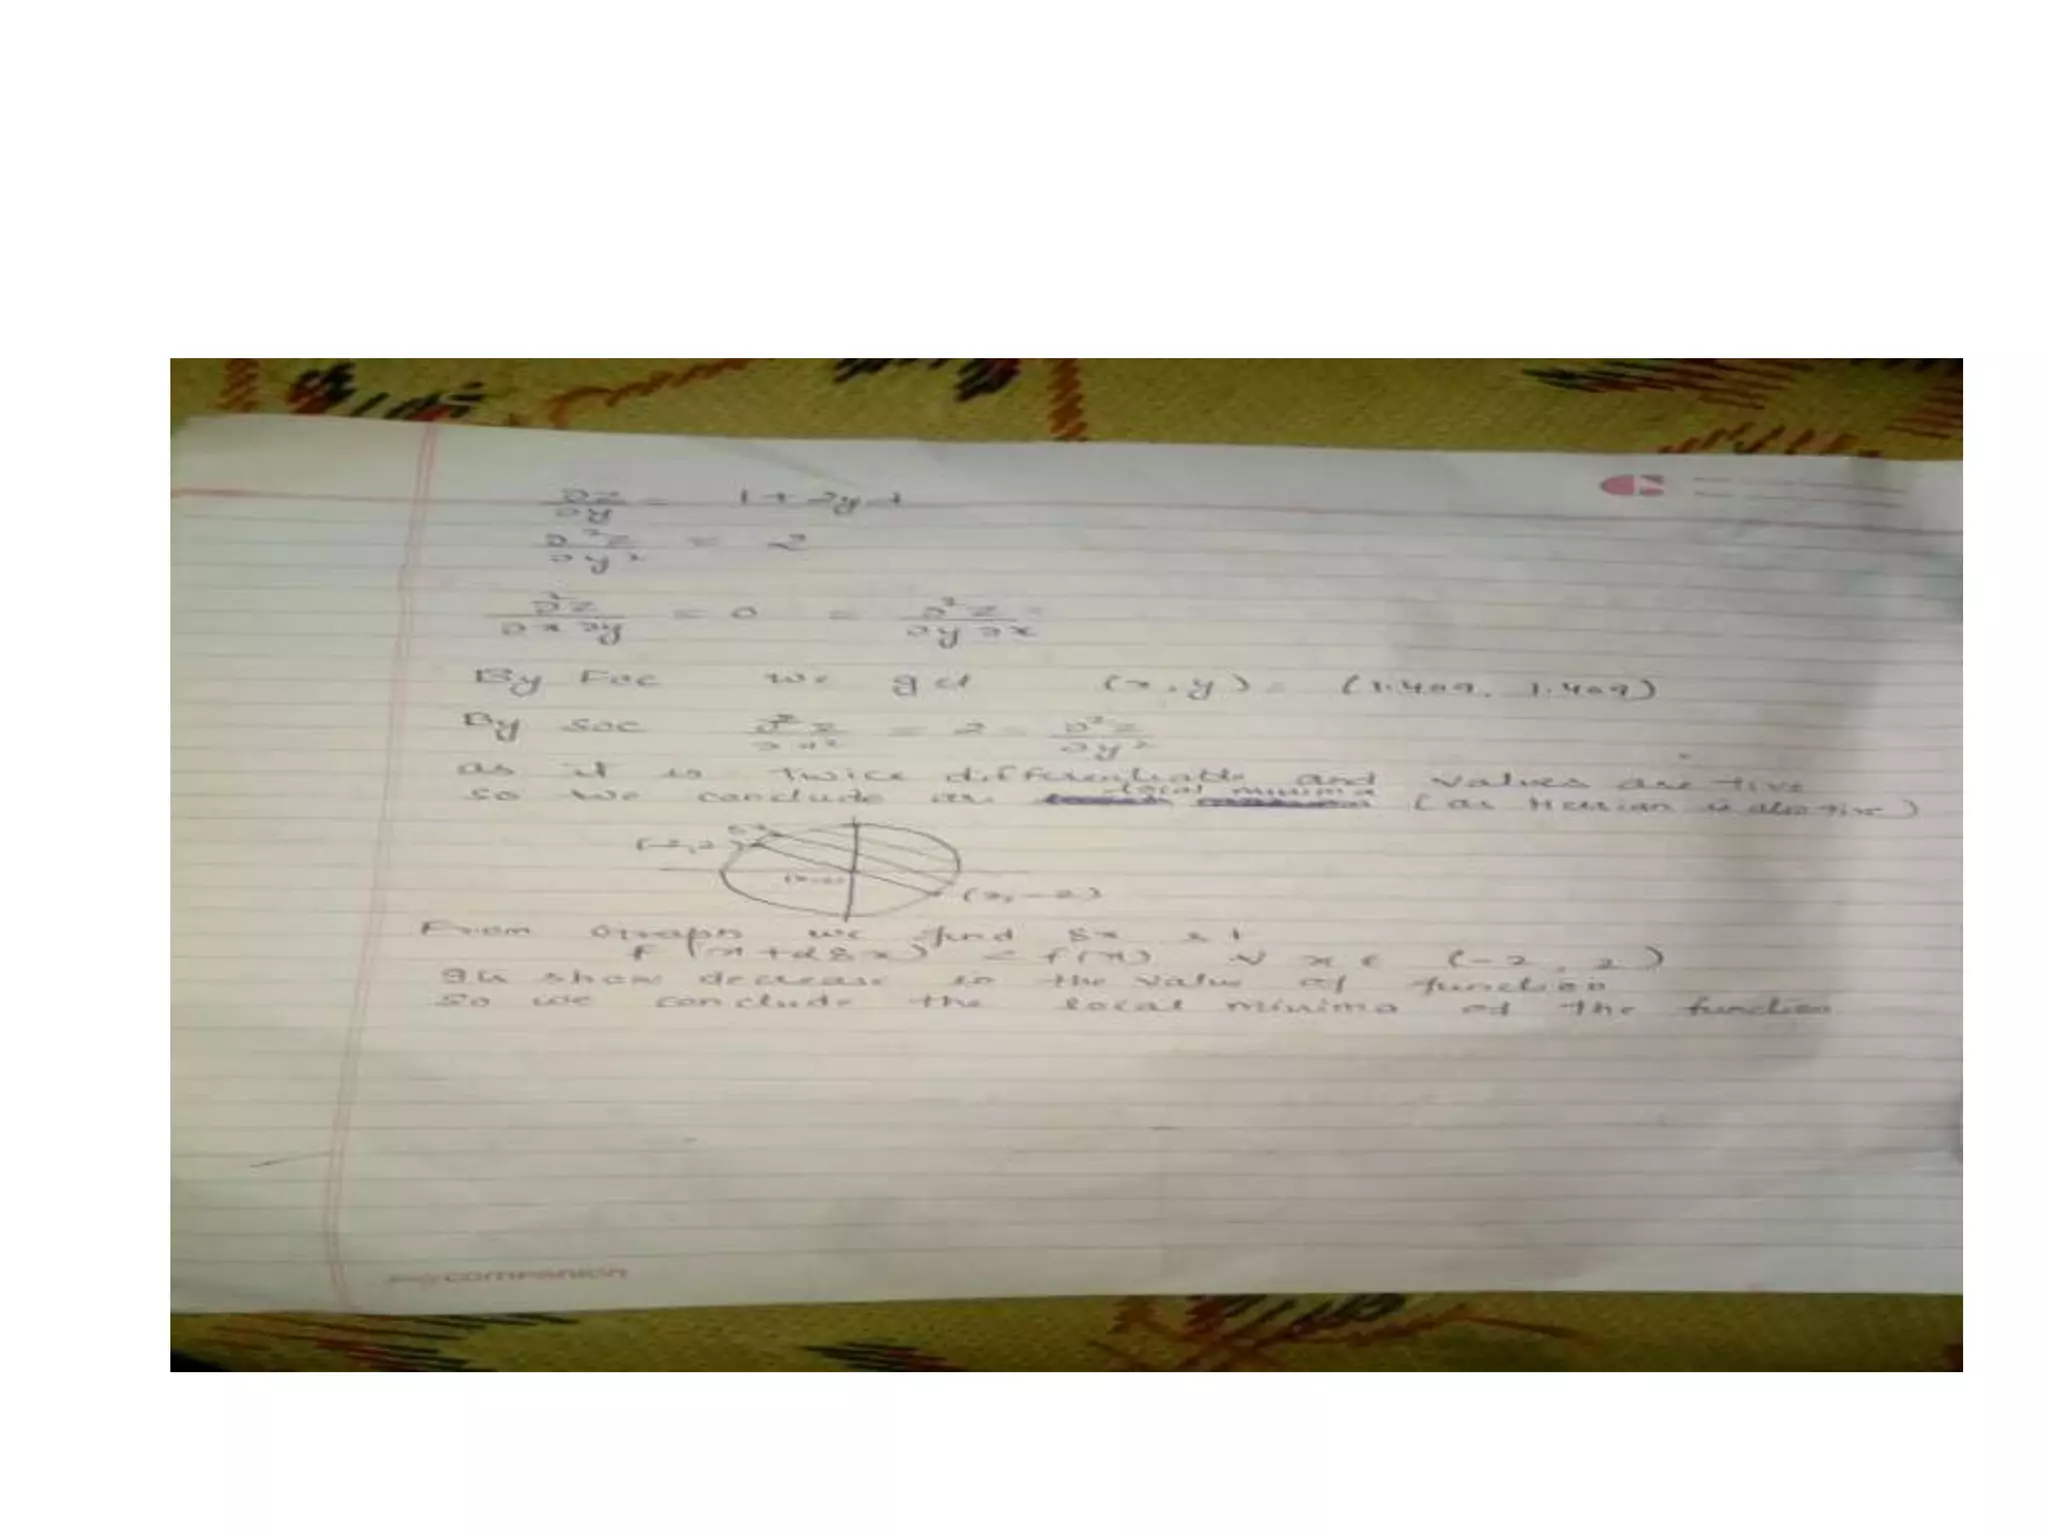 ∂z/∂y = 1 + 2y λ
∂²z/∂y² = 2
∂²z/∂x∂y = 0 = ∂²z/∂y∂x
By Foc we get (x, y) = (1.409, 1.409)
By soc ∂²z/∂x² = 2 = ∂²z/∂y²
as it is twice differentiable and values are +ive
so we conclude as local minima (as Hessian is also +ive)
(-2, 2)
(2, -2)
From Graph we find δx s t
f(x+αδx) < f(x) ∀ x ε (-2, 2)
It show decrease in the value of function
So we conclude the local minima of the function